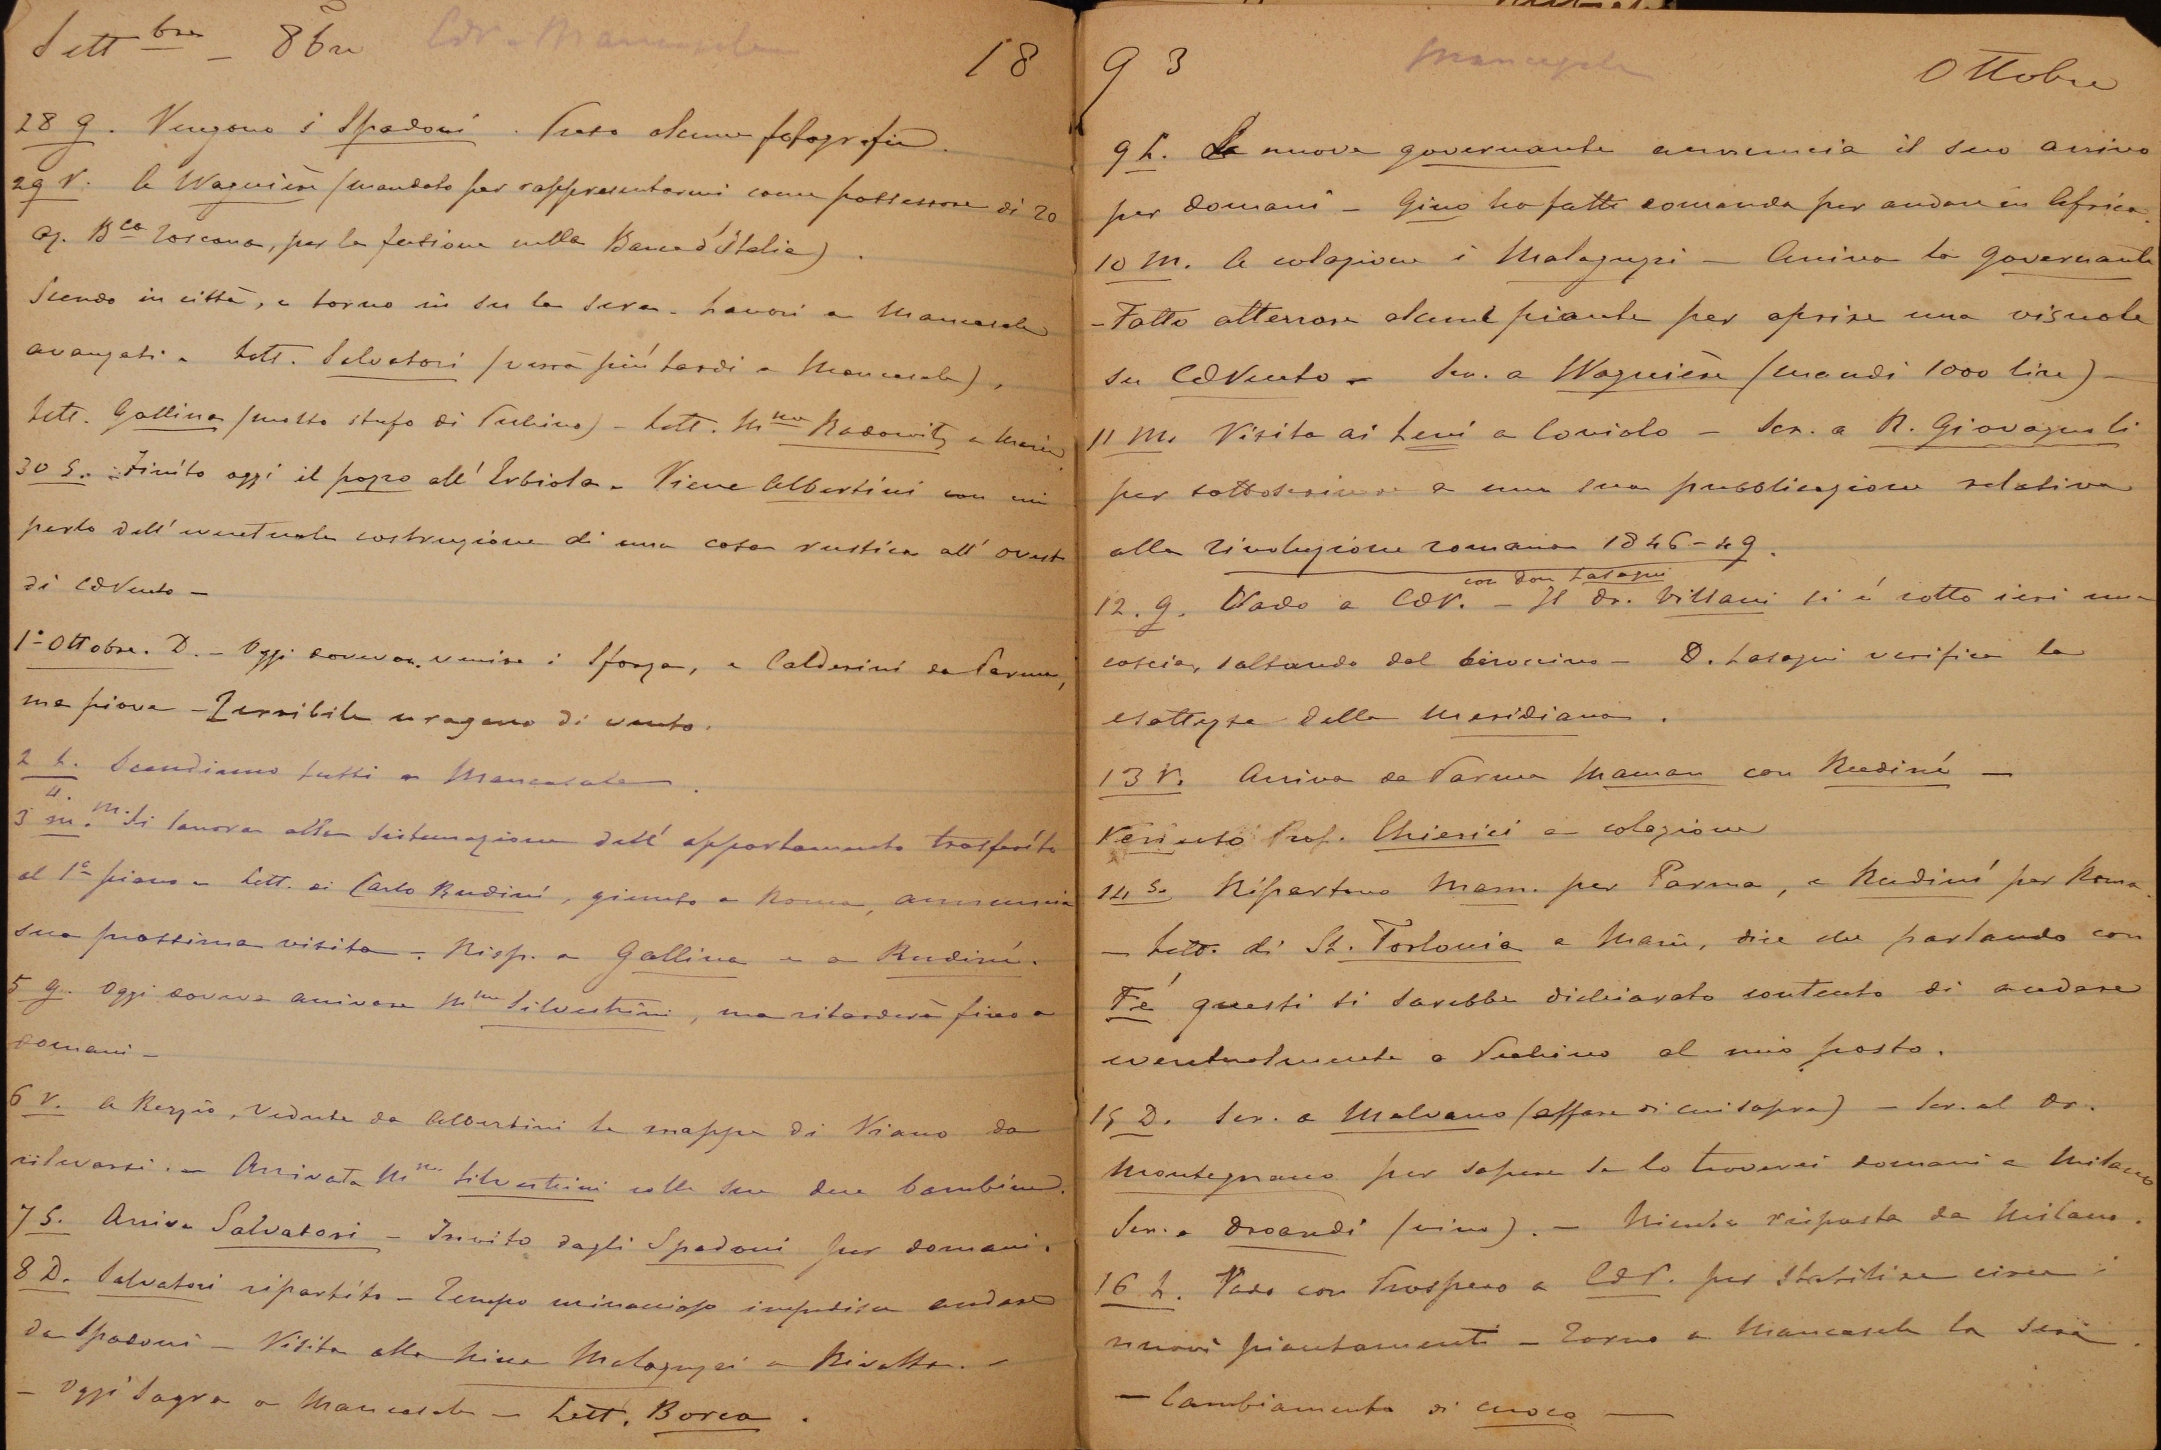 Sett bre - 8bre CdV - Mancasale 18
28 G. Vengono i Spadoni. Preso alcune fotografie.
29 V. A Wagnière (mandato per rappresentarmi come possessore di 20
az. Bca Toscana, per la fusione nella Banca d'Italia).
Scendo in città, e torno in su la sera - Lavori a Mancasale
avanzati - Lett. Salvatori (verrà più tardi a Mancasale),
Lett. Gallina (molto stufo di Pechino) - Lett. Mme Radowitz a Maria
30 S. - Finito oggi il pozzo all' Erbiola - Viene Albertini con cui
parlo dell' eventuale costruzione di una casa rustica all' ovest
di CdVento -
1° Ottobre. D. - Oggi dovevan venire i Sforza, e Calderini da Parma,
ma piove - Terribile uragano di vento.
2 L. Scendiamo tutti a Mancasale.
3 M. 4. M. Si lavora alla sistemazione dell' appartamento trasferito
al 1° piano - Lett. di Carlo Rudinì, giunto a Roma, annuncia
sua prossima visita - Risp. a Gallina e a Rudinì.
5 G. Oggi doveva arrivare Mme Silvestrini, ma ritarderà fino a
domani -
6 V. A Reggio, vedute da Albertini le mappe di Viano da
rilevarsi. - Arrivata Mme Silvestrini colle sue due bambine.
7 S. Arriva Salvatori - Invito dagli Spadoni per domani.
8 D. Salvatori ripartito - Tempo minaccioso impedisce andare
da Spadoni - Visita alla Nina Malaguzzi a Rivalta. -
- Oggi Sagra a Mancasale - Lett. Borea.
93 Mancasale Ottobre
9 L. La nuova governante annuncia il suo arrivo
per domani - Gino ha fatto domanda per andare in Africa.
10 M. A colazione i Malaguzzi - Arriva la governante
- Fatto atterrare alcune piante per aprire una visuale
su CdVento - Scr. a Wagnière (mandi 1000 lire) -
11 M. Visita ai Levi a Coviolo - Scr. a R. Giovagnoli
per sottoscrivere a una sua pubblicazione relativa
alla rivoluzione romana 1846-49.
con Don Lasagni
12. G. Vado a CdV. - Il Dr. Villani si è rotto ieri una
coscia, saltando dal biroccino - D. Lasagni verifica la
esattezza della meridiana.
13 V. Arriva da Parma Maman con Rudinì -
Venuto Prof. Chierici a colazione
14 S. Ripartono Mam. per Parma, e Rudinì per Roma.
- Lett. di St. Torlonia a Maria, dice che parlando con
Fè questi si sarebbe dichiarato contento di andare
eventualmente a Pechino al mio posto.
15 D. Scr. a Malvano (affare di cui sopra) - Scr. al Dr.
Montegnaro per sapere se lo troverei domani a Milano
Scr. a Droandi (vino). - Niente risposta da Milano.
16 L. Vado con Prospero a CdV. per stabilire circa i
nuovi piantamenti - Torno a Mancasale la sera.
- Cambiamento di cuoco -